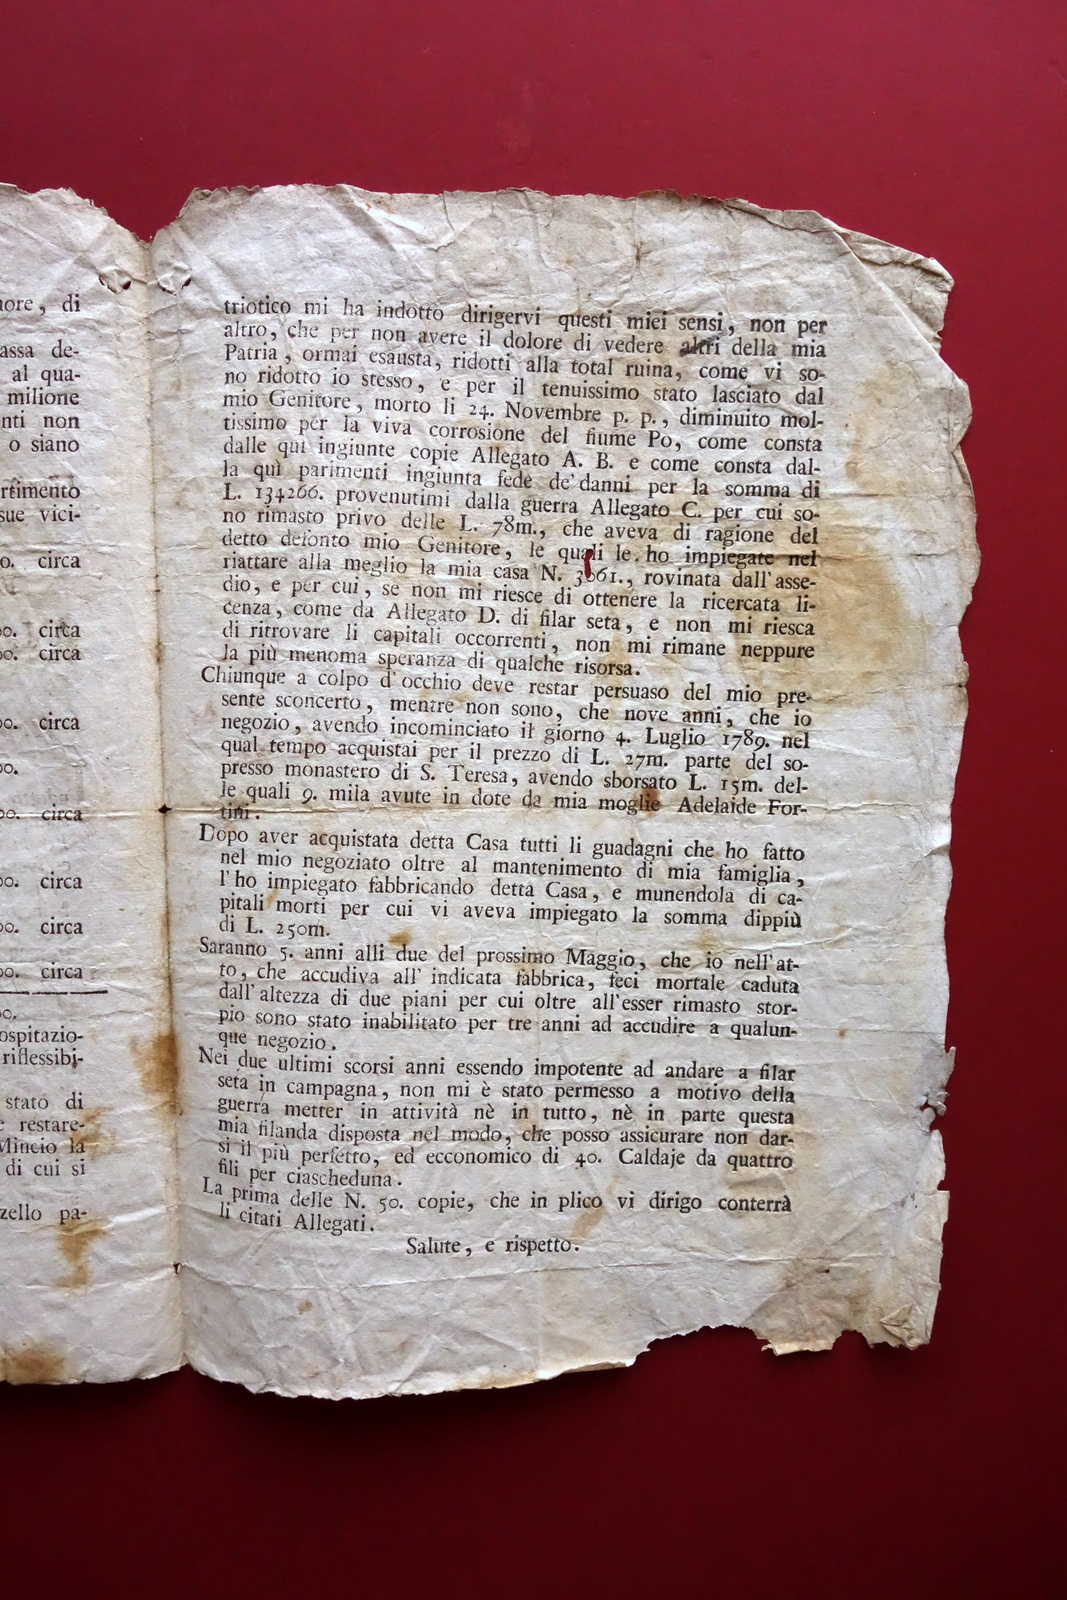 nore, di
assa de-
al qua-
milione
nti non
o siano
rtimento
sue vici-
o. circa
oo. circa
oo. circa
oo. circa
oo.
oo. circa
oo. circa
oo. circa
oo. circa
oo.
ospitazio-
riflessibi-
stato di
e restare-
Mincio la
di cui si
zello pa-
triotico mi ha indotto dirigervi questi miei sensi, non per
altro, che per non avere il dolore di vedere altri della mia
Patria, ormai esausta, ridotti alla total ruina, come vi so-
no ridotto io stesso, e per il tenuissimo stato lasciato dal
mio Genitore, morto li 24. Novembre p. p., diminuito mol-
tissimo per la viva corrosione del fiume Po, come consta
dalle qui ingiunte copie Allegato A. B. e come consta dal-
la qui parimenti ingiunta fede de' danni per la somma di
L. 134266. provenutimi dalla guerra Allegato C. per cui so-
no rimasto privo delle L. 78m., che aveva di ragione del
detto defonto mio Genitore, le quali le ho impiegate nel
riattare alla meglio la mia casa N. 3661., rovinata dall'asse-
dio, e per cui, se non mi riesce di ottenere la ricercata li-
cenza, come da Allegato D. di filar seta, e non mi riesca
di ritrovare li capitali occorrenti, non mi rimane neppure
la più menoma speranza di qualche risorsa.
Chiunque a colpo d'occhio deve restar persuaso del mio pre-
sente sconcerto, mentre non sono, che nove anni, che io
negozio, avendo incominciato il giorno 4. Luglio 1789. nel
qual tempo acquistai per il prezzo di L. 27m. parte del so-
presso monastero di S. Teresa, avendo sborsato L. 15m. del-
le quali 9. mila avute in dote da mia moglie Adelaide For-
tini.
Dopo aver acquistata detta Casa tutti li guadagni che ho fatto
nel mio negoziato oltre al mantenimento di mia famiglia,
l'ho impiegato fabbricando detta Casa, e munendola di ca-
pitali morti per cui vi aveva impiegato la somma dippiù
di L. 250m.
Saranno 5. anni alli due del prossimo Maggio, che io nell'at-
to, che accudiva all' indicata fabbrica, feci mortale caduta
dall'altezza di due piani per cui oltre all'esser rimasto stor-
pio sono stato inabilitato per tre anni ad accudire a qualun-
que negozio.
Nei due ultimi scorsi anni essendo impotente ad andare a filar
seta in campagna, non mi è stato permesso a motivo della
guerra metter in attività nè in tutto, nè in parte questa
mia filanda disposta nel modo, che posso assicurare non dar-
si il più perfetto, ed ecconomico di 40. Caldaje da quattro
fili per ciascheduna.
La prima delle N. 50. copie, che in plico vi dirigo conterrà
li citati Allegati.
Salute, e rispetto.